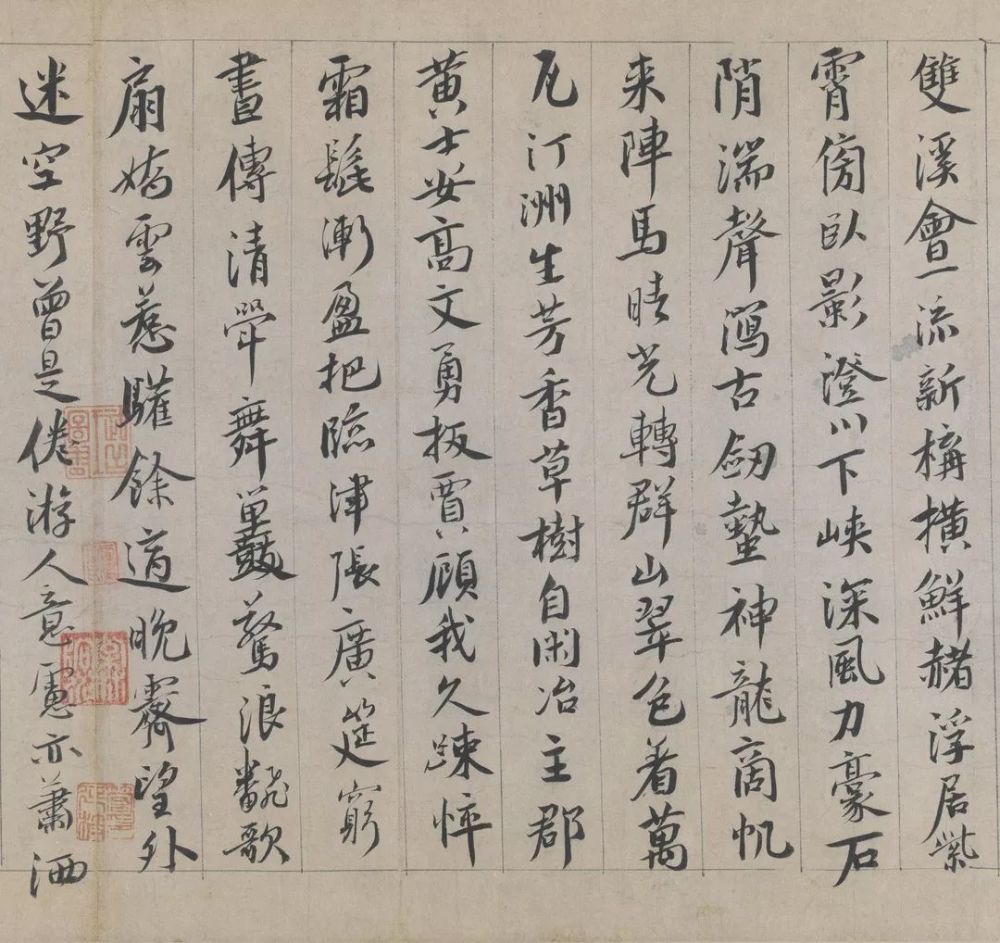 雙溪會一流新構橫鮮赭浮居紫
霄傍臥影澄川下峽深風力豪石
陗湍聲瀉古劒蟄神龍商帆
来陣馬晴光轉群山翠色着萬
瓦汀洲生芳香草樹自閑冶主郡
黃士安高文勇扳賈顧我久疎悴
霜髭漸盈把臨津張廣筵窮
晝傳清斝舞驚浪翻歌
扇嬌雲惹驩餘適晚霽望外
迷空野曾是倦游人意慮亦蕭洒